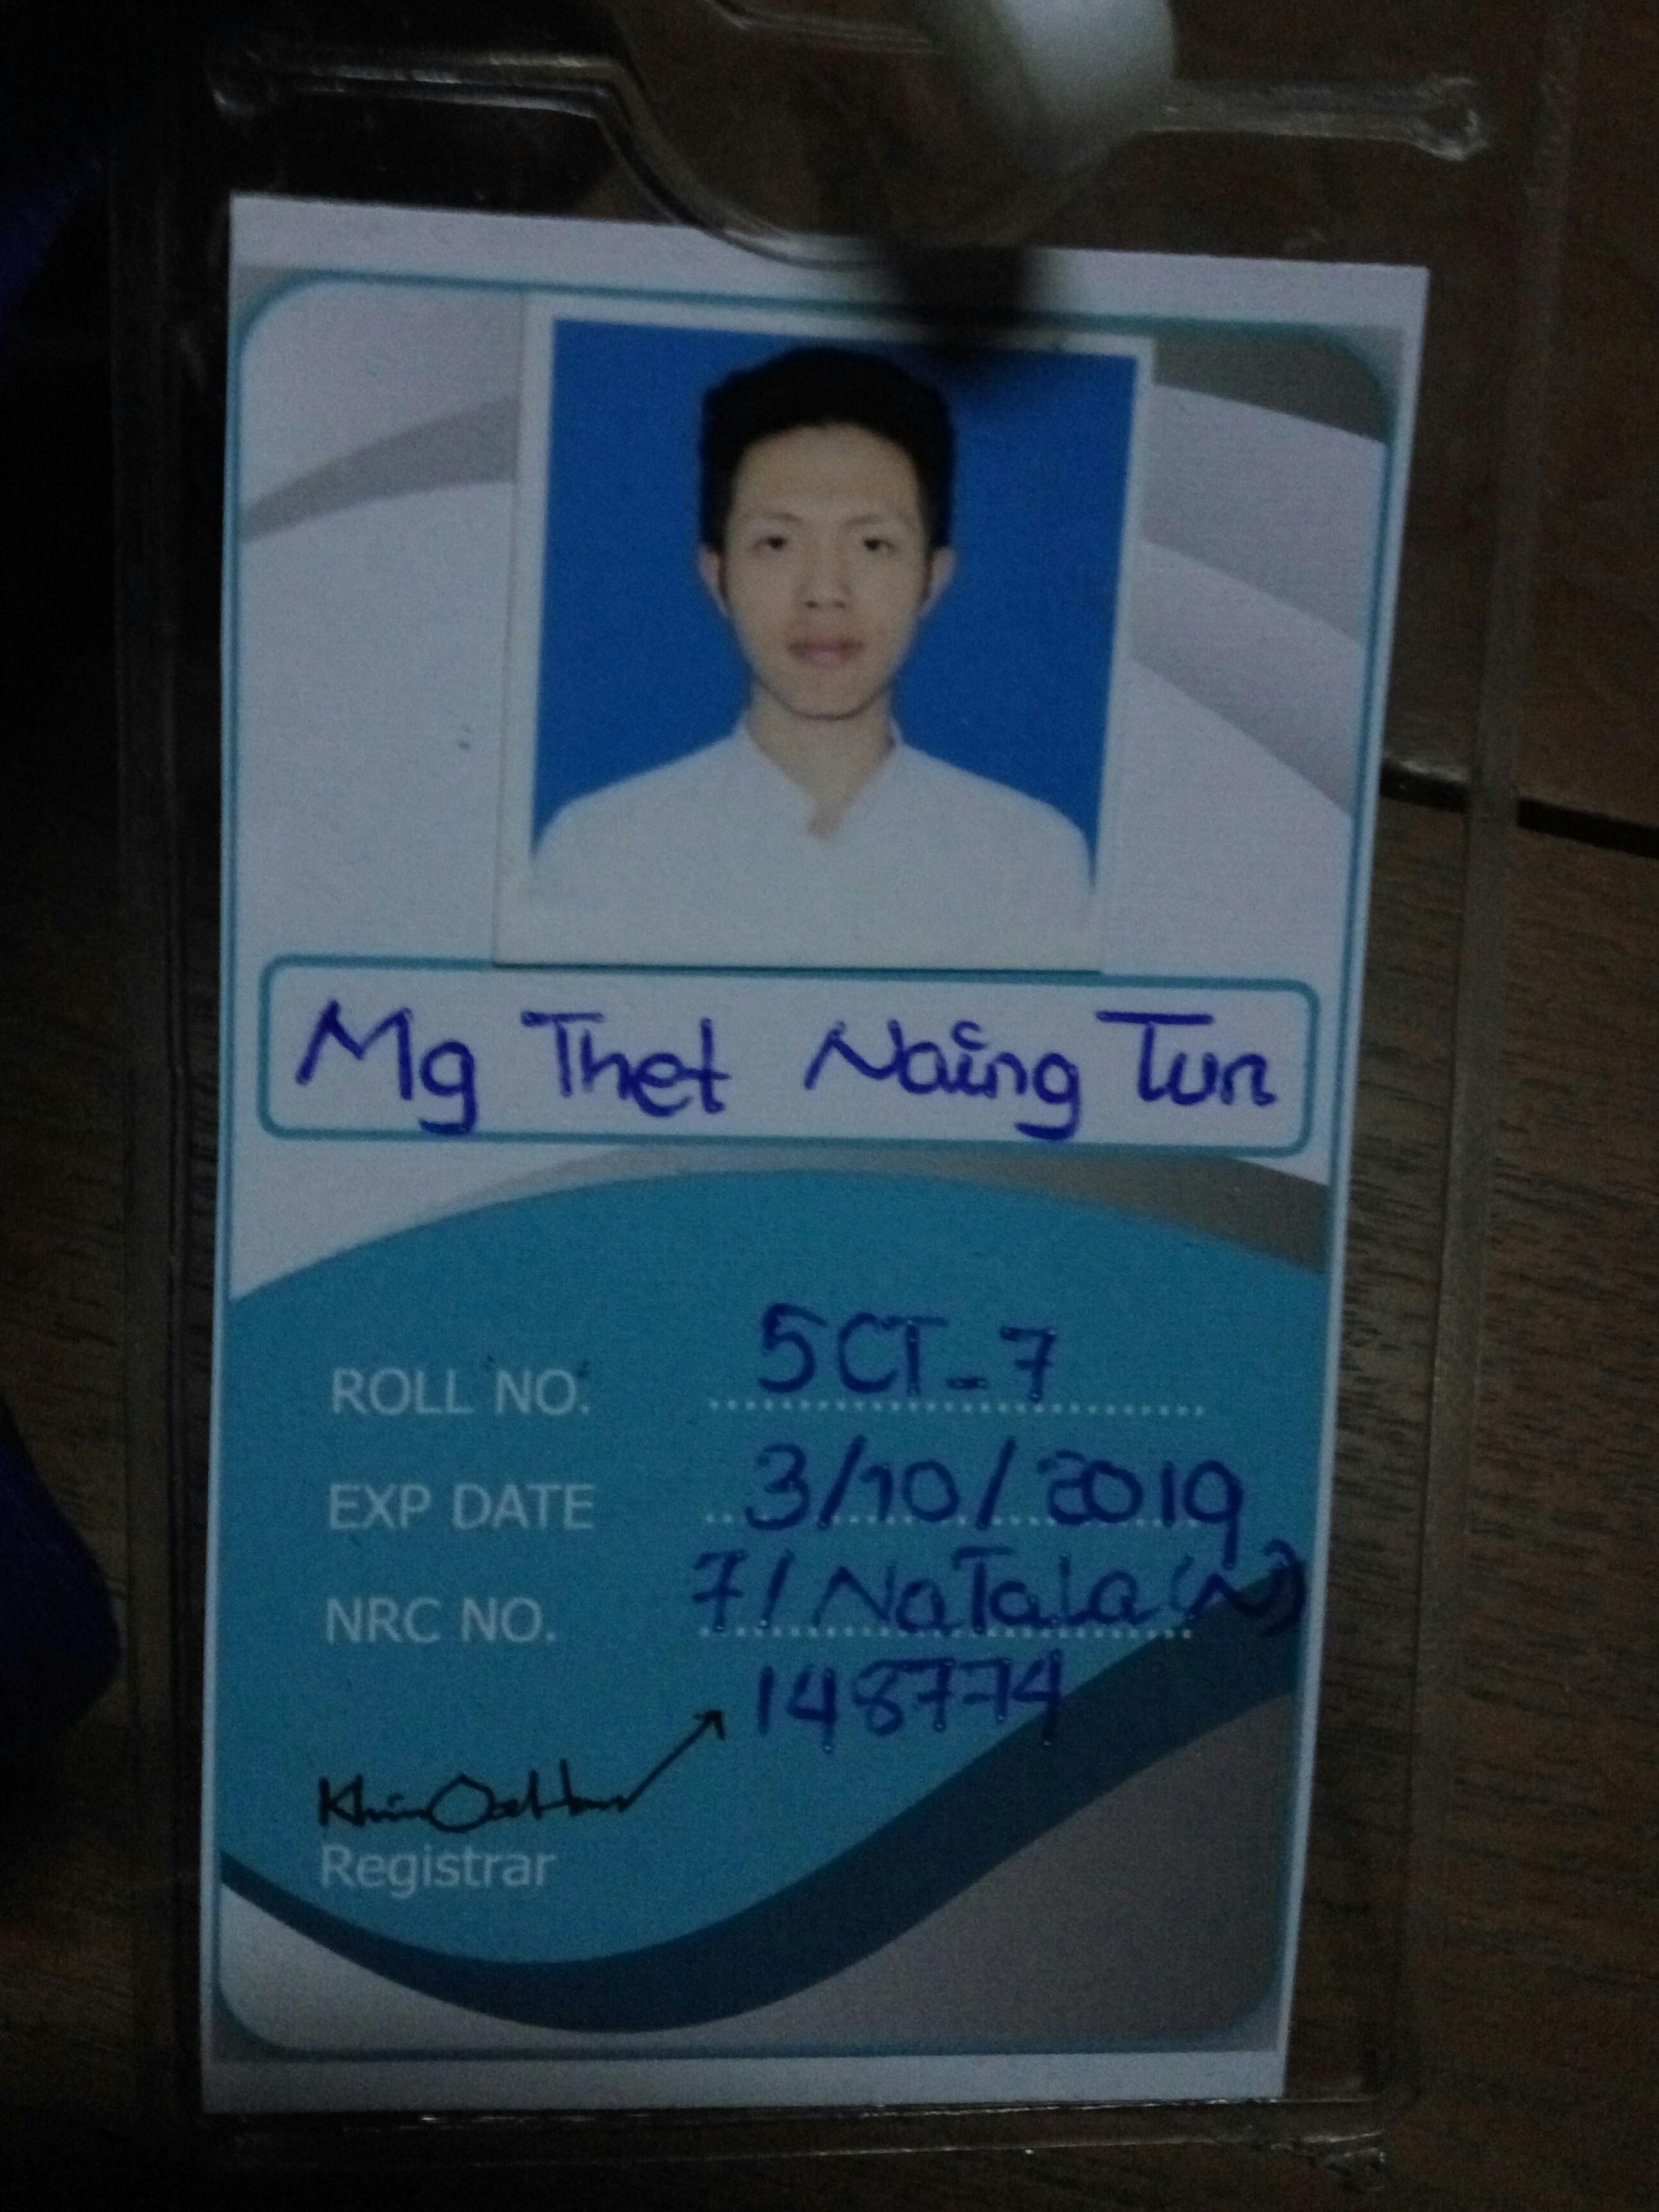 Mg Thet Naing Tun
ROLL NO. 5CT-7
EXP DATE 3/10/2019
NRC NO. 7/NaTaLa(N)
148774
Registrar